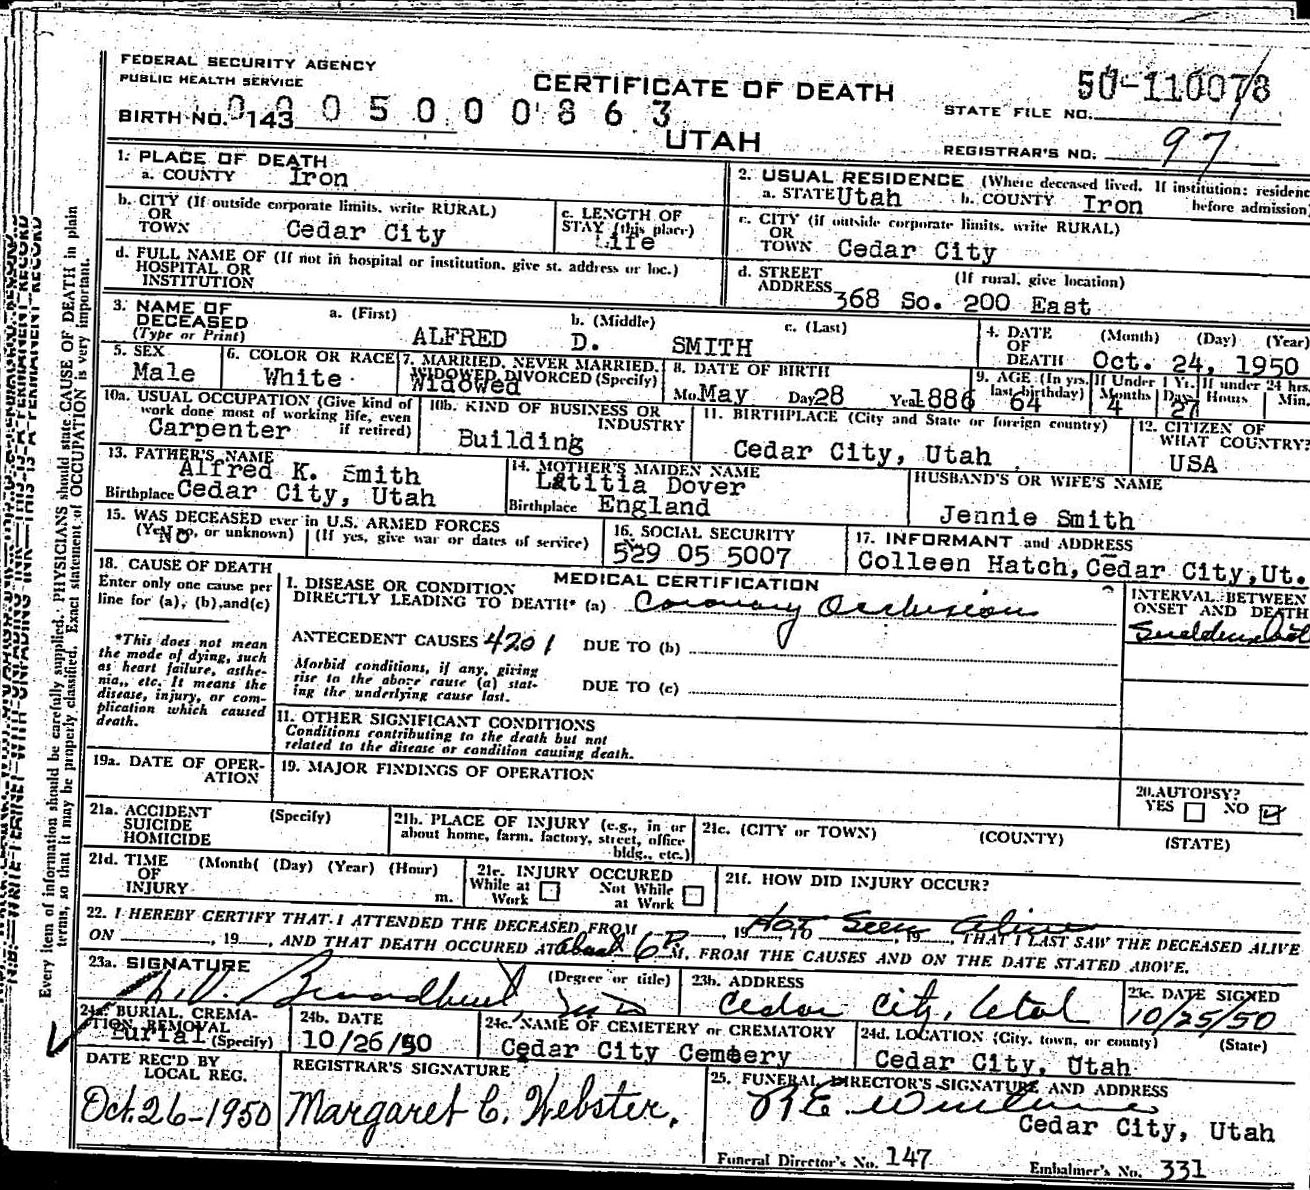 FEDERAL SECURITY AGENCY
PUBLIC HEALTH SERVICE
BIRTH NO. 143 0005000863
CERTIFICATE OF DEATH
UTAH
50-110078
STATE FILE NO.
REGISTRAR'S NO. 97
1. PLACE OF DEATH
a. COUNTY Iron
2. USUAL RESIDENCE (Where deceased lived. If institution: residence before admission)
a. STATE Utah b. COUNTY Iron
b. CITY (If outside corporate limits, write RURAL) OR TOWN Cedar City
c. LENGTH OF STAY (this place) Life
c. CITY (if outside corporate limits, write RURAL) OR TOWN Cedar City
d. FULL NAME OF (If not in hospital or institution, give st. address or loc.) HOSPITAL OR INSTITUTION
d. STREET ADDRESS (If rural, give location) 368 So. 200 East
3. NAME OF DECEASED (Type or Print)
a. (First) ALFRED b. (Middle) D. c. (Last) SMITH
4. DATE OF DEATH (Month) (Day) (Year) Oct. 24, 1950
5. SEX Male
6. COLOR OR RACE White
7. MARRIED, NEVER MARRIED, WIDOWED, DIVORCED (Specify) Widowed
8. DATE OF BIRTH Mo. May Day 28 Year 1886
9. AGE (In yrs. last birthday) 64 If Under 1 Yr. Months 4 Days 27 If under 24 hrs. Hours Min.
10a. USUAL OCCUPATION (Give kind of work done most of working life, even if retired) Carpenter
10b. KIND OF BUSINESS OR INDUSTRY Building
11. BIRTHPLACE (City and State or foreign country) Cedar City, Utah
12. CITIZEN OF WHAT COUNTRY? USA
13. FATHER'S NAME Alfred K. Smith
Birthplace Cedar City, Utah
14. MOTHER'S MAIDEN NAME Latitia Dover
Birthplace England
HUSBAND'S OR WIFE'S NAME Jennie Smith
15. WAS DECEASED ever in U.S. ARMED FORCES (Yes, no, or unknown) No (If yes, give war or dates of service)
16. SOCIAL SECURITY No. 529 05 5007
17. INFORMANT and ADDRESS Colleen Hatch, Cedar City, Ut.
18. CAUSE OF DEATH
Enter only one cause per line for (a), (b), and (c)
*This does not mean the mode of dying, such as heart failure, asthenia, etc. It means the disease, injury, or complication which caused death.
MEDICAL CERTIFICATION
1. DISEASE OR CONDITION DIRECTLY LEADING TO DEATH* (a) Coronary Occlusion
ANTECEDENT CAUSES 4201 DUE TO (b)
Morbid conditions, if any, giving rise to the above cause (a) stating the underlying cause last. DUE TO (c)
INTERVAL BETWEEN ONSET AND DEATH
11. OTHER SIGNIFICANT CONDITIONS
Conditions contributing to the death but not related to the disease or condition causing death.
19a. DATE OF OPERATION
19. MAJOR FINDINGS OF OPERATION
20. AUTOPSY? YES NO
21a. ACCIDENT SUICIDE HOMICIDE (Specify)
21b. PLACE OF INJURY (e.g., in or about home, farm, factory, street, office bldg., etc.)
21c. (CITY or TOWN) (COUNTY) (STATE)
21d. TIME OF INJURY (Month( (Day) (Year) (Hour) m.
21e. INJURY OCCURED While at Work Not While at Work
21f. HOW DID INJURY OCCUR?
22. I HEREBY CERTIFY THAT I ATTENDED THE DECEASED FROM 19 TO 19 Not Seen Alive, THAT I LAST SAW THE DECEASED ALIVE
ON , 19 , AND THAT DEATH OCCURED AT about 6 P M, FROM THE CAUSES AND ON THE DATE STATED ABOVE.
23a. SIGNATURE Broadbent (Degree or title) M.D.
23b. ADDRESS Cedar City, Utah
23c. DATE SIGNED 10/25/50
24a. BURIAL, CREMATION, REMOVAL (Specify) Burial
24b. DATE 10/26/50
24c. NAME OF CEMETERY or CREMATORY Cedar City Cemetery
24d. LOCATION (City, town, or county) (State) Cedar City, Utah
DATE REC'D BY LOCAL REG. Oct. 26-1950
REGISTRAR'S SIGNATURE Margaret C. Webster.
25. FUNERAL DIRECTOR'S SIGNATURE AND ADDRESS
Cedar City, Utah
Funeral Director's No. 147 Embalmer's No. 331
Every item of information should be carefully supplied. PHYSICIANS should state CAUSE OF DEATH in plain
terms, so that it may be properly classified. Exact statement of OCCUPATION is very important.